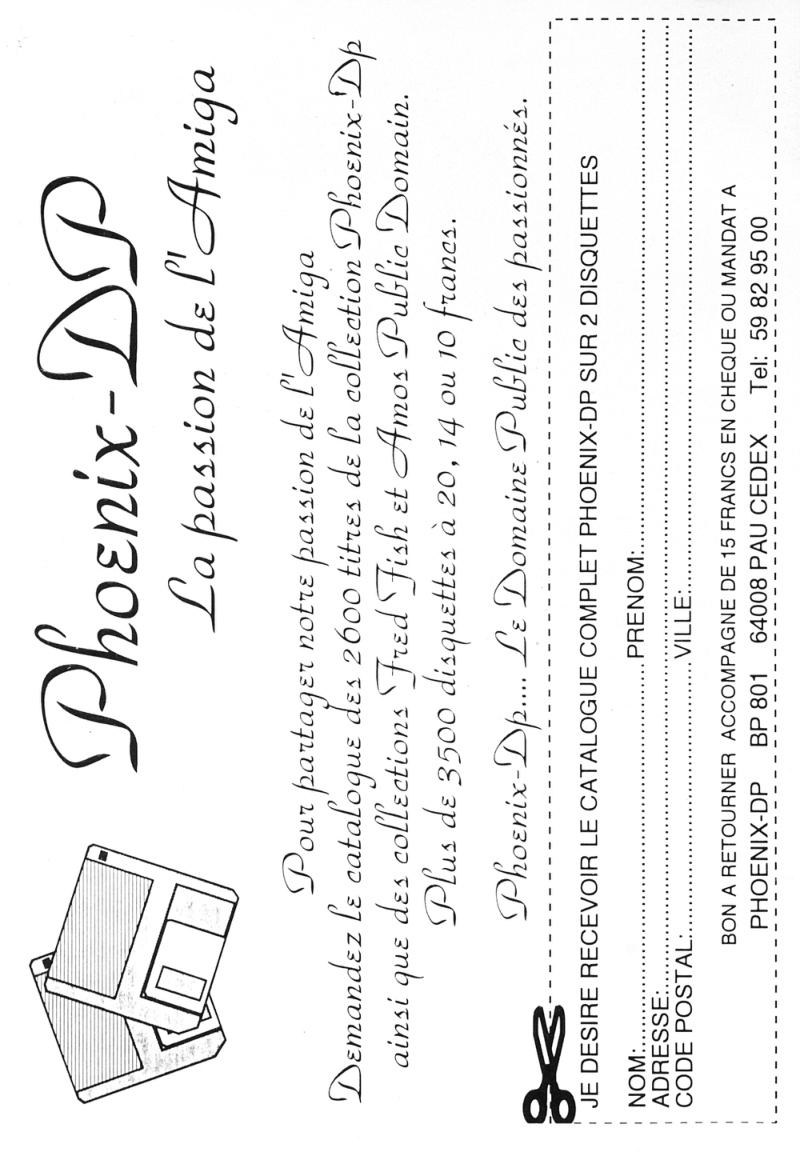 Phoenix-DP
La passion de l'Amiga
Pour partager notre passion de l'Amiga
Demandez le catalogue des 2600 titres de la collection Phoenix-Dp
ainsi que des collections Fred Fish et Amos Public Domain.
Plus de 3500 disquettes à 20, 14 ou 10 francs.
Phoenix-Dp.... Le Domaine Public des passionnés.
JE DESIRE RECEVOIR LE CATALOGUE COMPLET PHOENIX-DP SUR 2 DISQUETTES
NOM:.......................................PRENOM:.......................................
ADRESSE:.......................................
CODE POSTAL:.......................................VILLE:.......................................
BON A RETOURNER ACCOMPAGNE DE 15 FRANCS EN CHEQUE OU MANDAT A
PHOENIX-DP BP 801 64008 PAU CEDEX Tel: 59 82 95 00